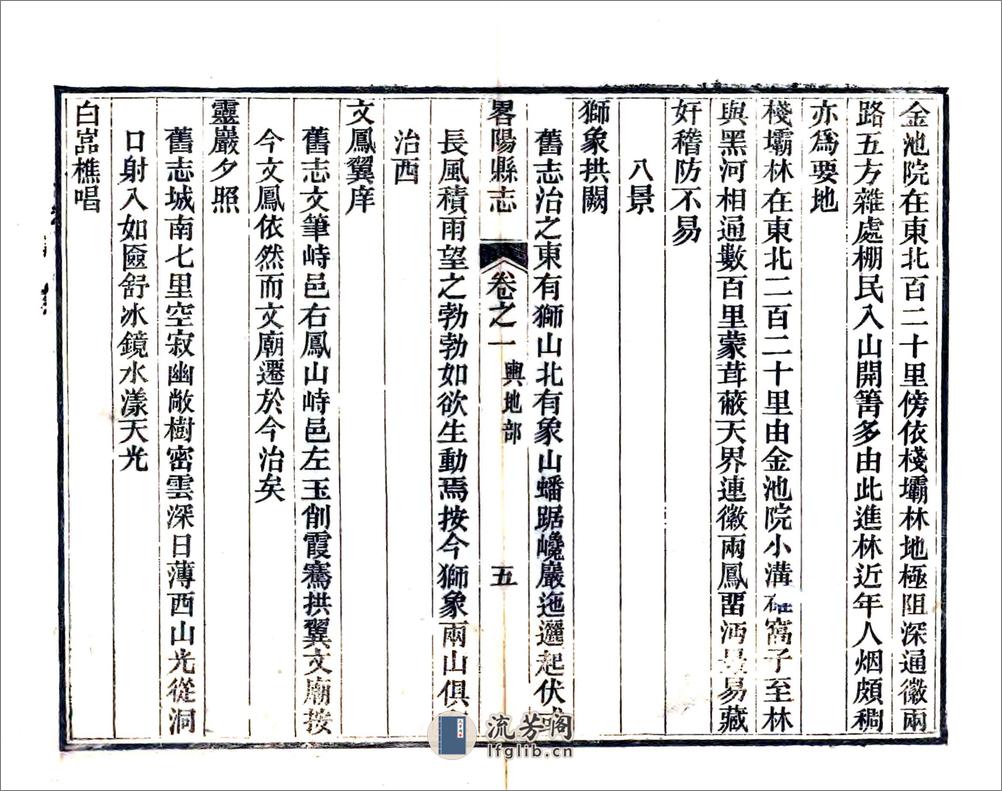 金池院在東北百二十里傍依棧壩林地極阻深通徽兩
路五方雜處棚民入山開箐多由此進林近年人烟頗稠
亦爲要地
棧壩林在東北二百二十里由金池院小溝窩子至林
與黑河相通數百里蒙茸蔽天界連徽兩鳳畱沔最易藏
奸稽防不易
八景
獅象拱闕
舊志治之東有獅山北有象山蟠踞巉巖迤邐起伏
畧陽縣志
卷之一
輿地部
五
長風積雨望之勃勃如欲生動焉按今獅象兩山俱
治西
文鳳翼庠
舊志文筆峙邑右鳳山峙邑左玉削霞騫拱翼文廟按
今文鳳依然而文廟遷於今治矣
靈巖夕照
舊志城南七里空寂幽敞樹密雲深日薄西山光從洞
口射入如匳舒冰鏡水漾天光
白嵓樵唱
流芳閣
lfglib.cn